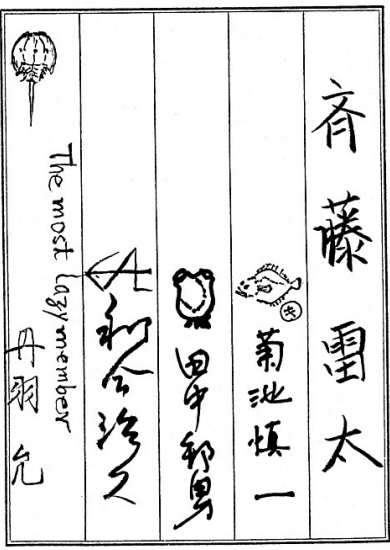 斉藤雷太
菊池慎一
田中邦男
和合治久
The most lazy member
丹羽允